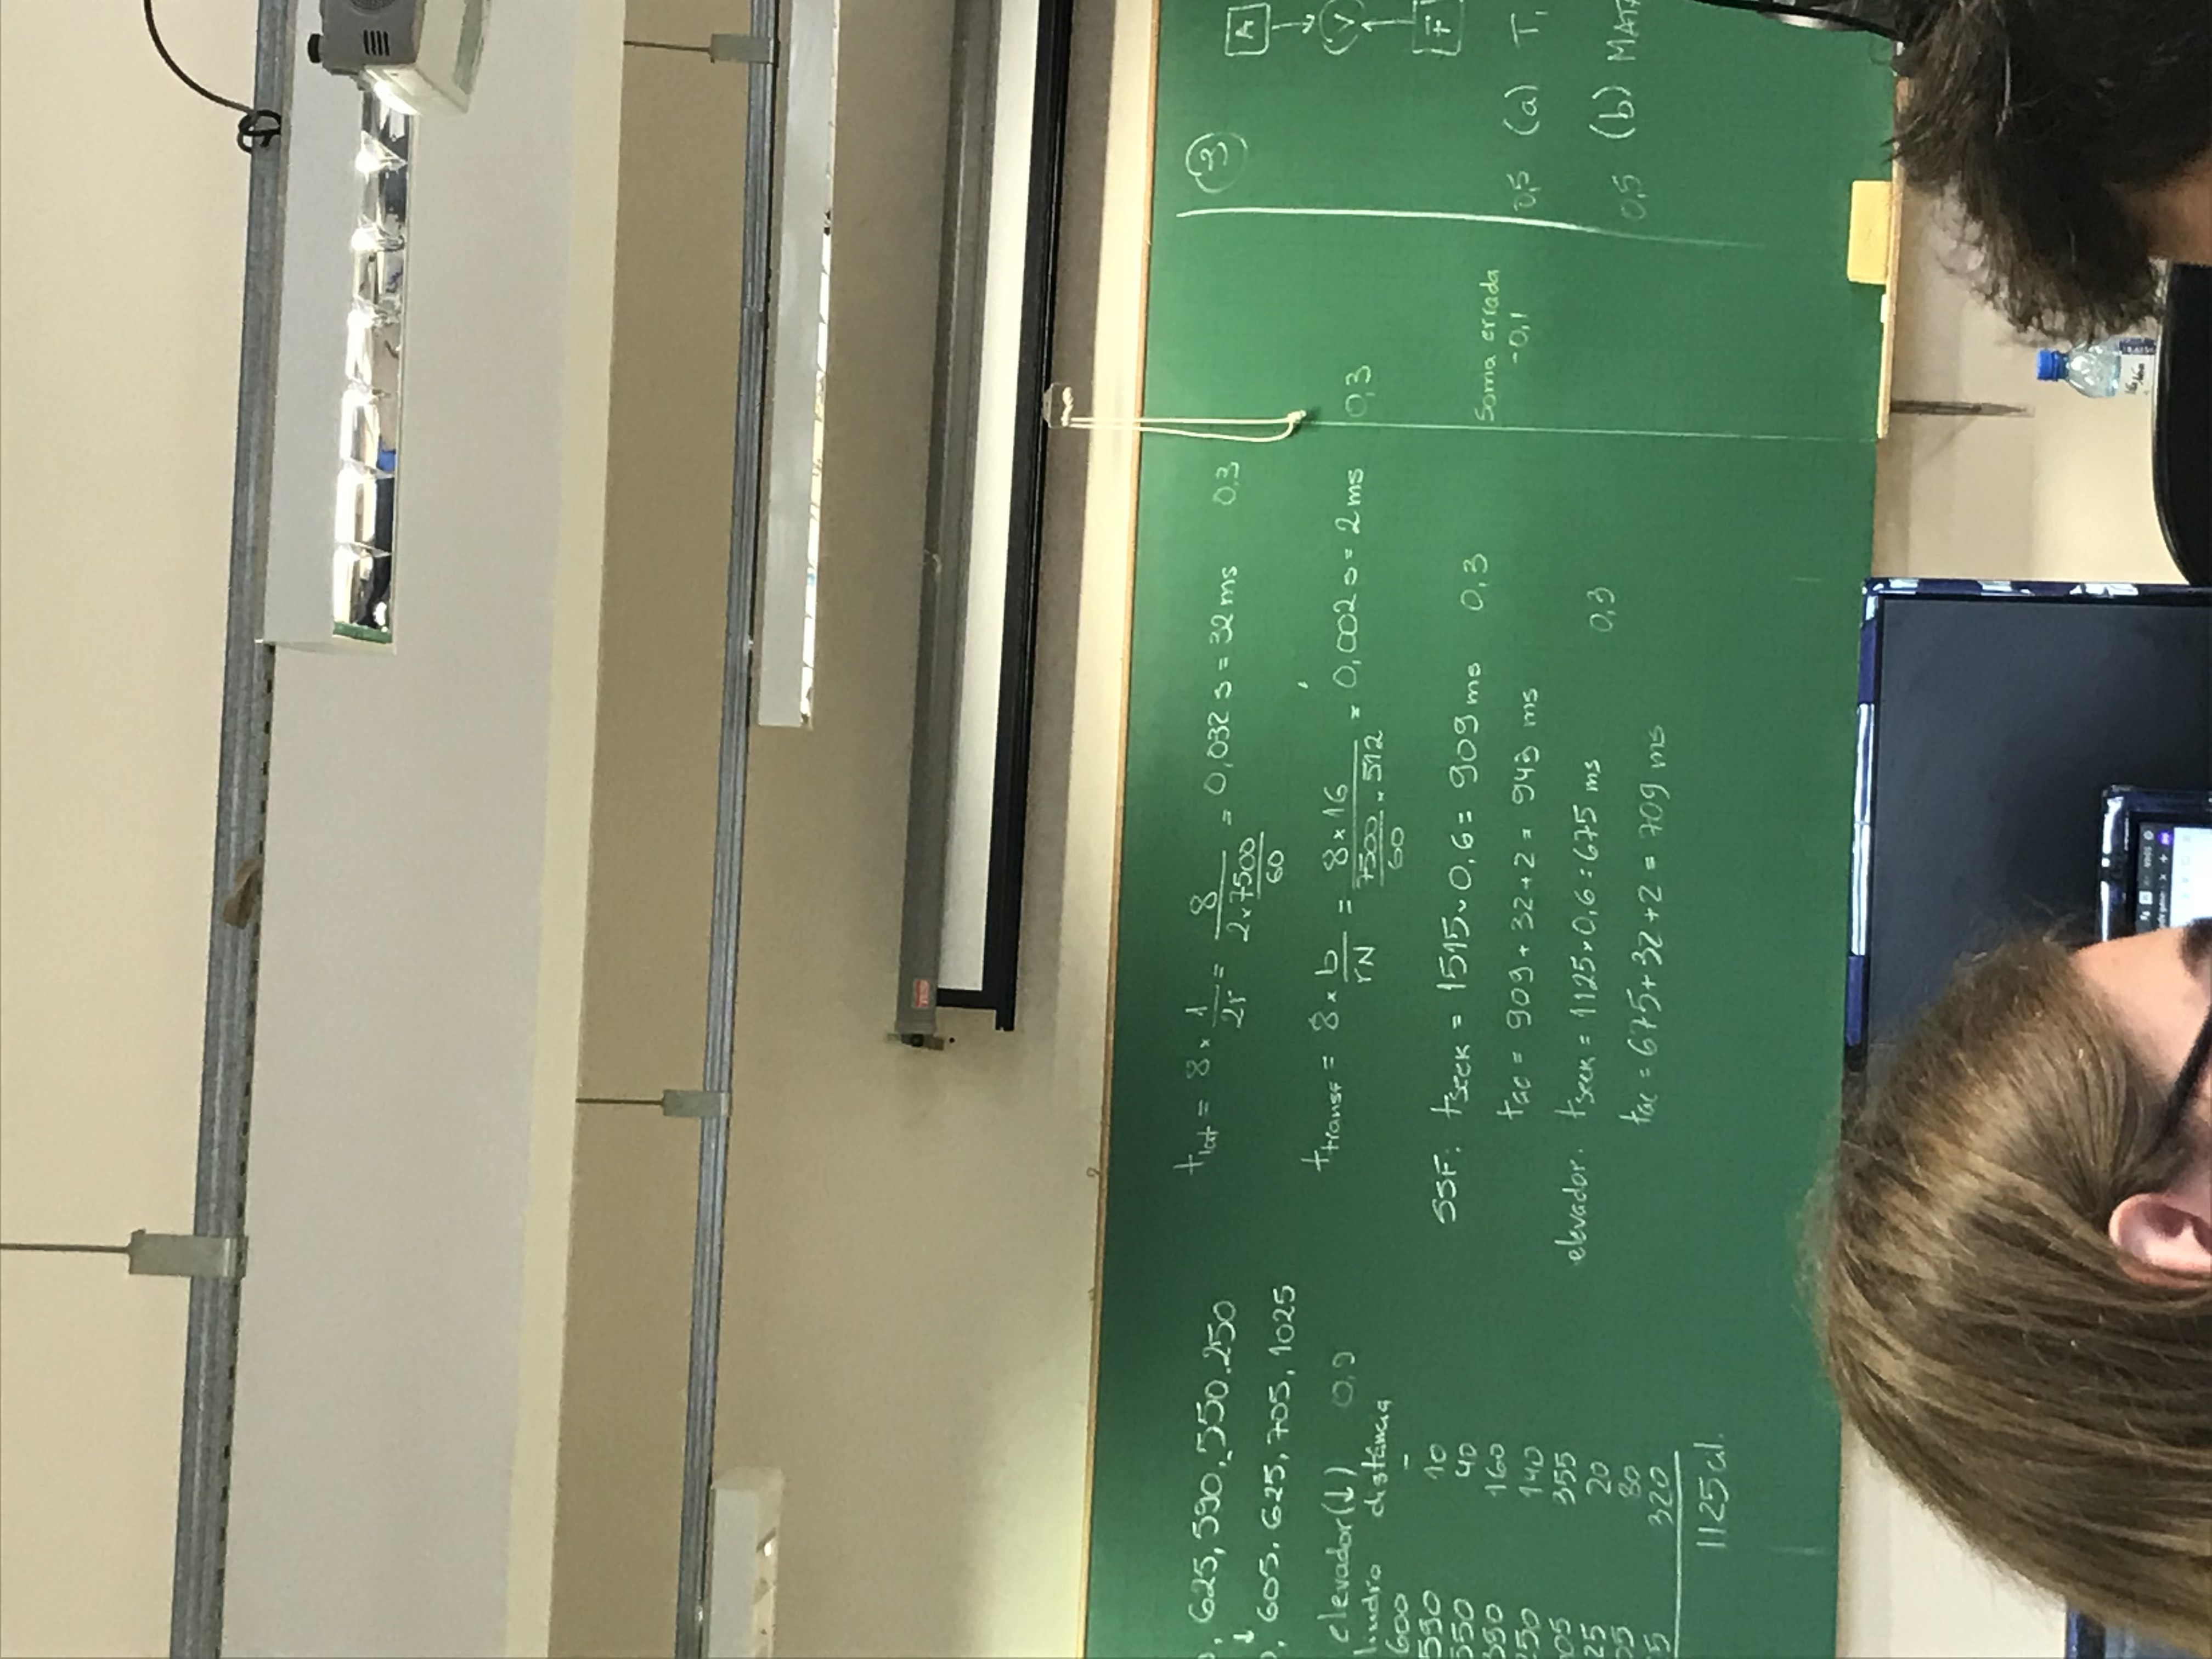 , 625, 590, 550, 250
↓
, 605, 625, 705, 1025
elevador(↓) 0,9
lindro distância
600 -
590 10
550 40
390 160
250 140
05 355
25 20
05 80
5 320
1125 cil.
t_lat = 8 × 1/2r = 8/(2×7500/60) = 0,032 s = 32 ms 0,3
t_transf = 8 × b/rN = 8×16/(7500/60 × 512) = 0,002 s = 2 ms 0,3
SSF: t_seek = 1515 × 0,6 = 909 ms 0,3
t_ac = 909 + 32 + 2 = 943 ms
elevador. t_seek = 1125 × 0,6 = 675 ms 0,3
t_ac = 675 + 32 + 2 = 709 ms
Soma errada
-0,1
3
A
V
F
0,5 (a) T₁
0,5 (b) MAT